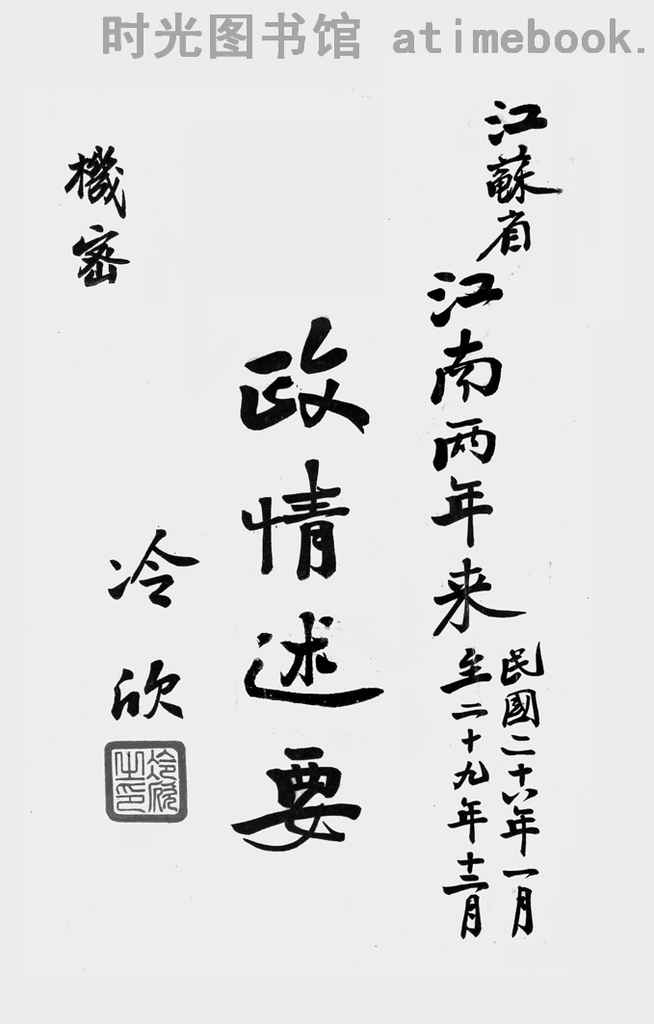 时光图书馆 atimebook.
江蘇省
江南两年来
民國二十八年一月
至二十九年十二月
政情述要
冷欣
冷欣之印
機密